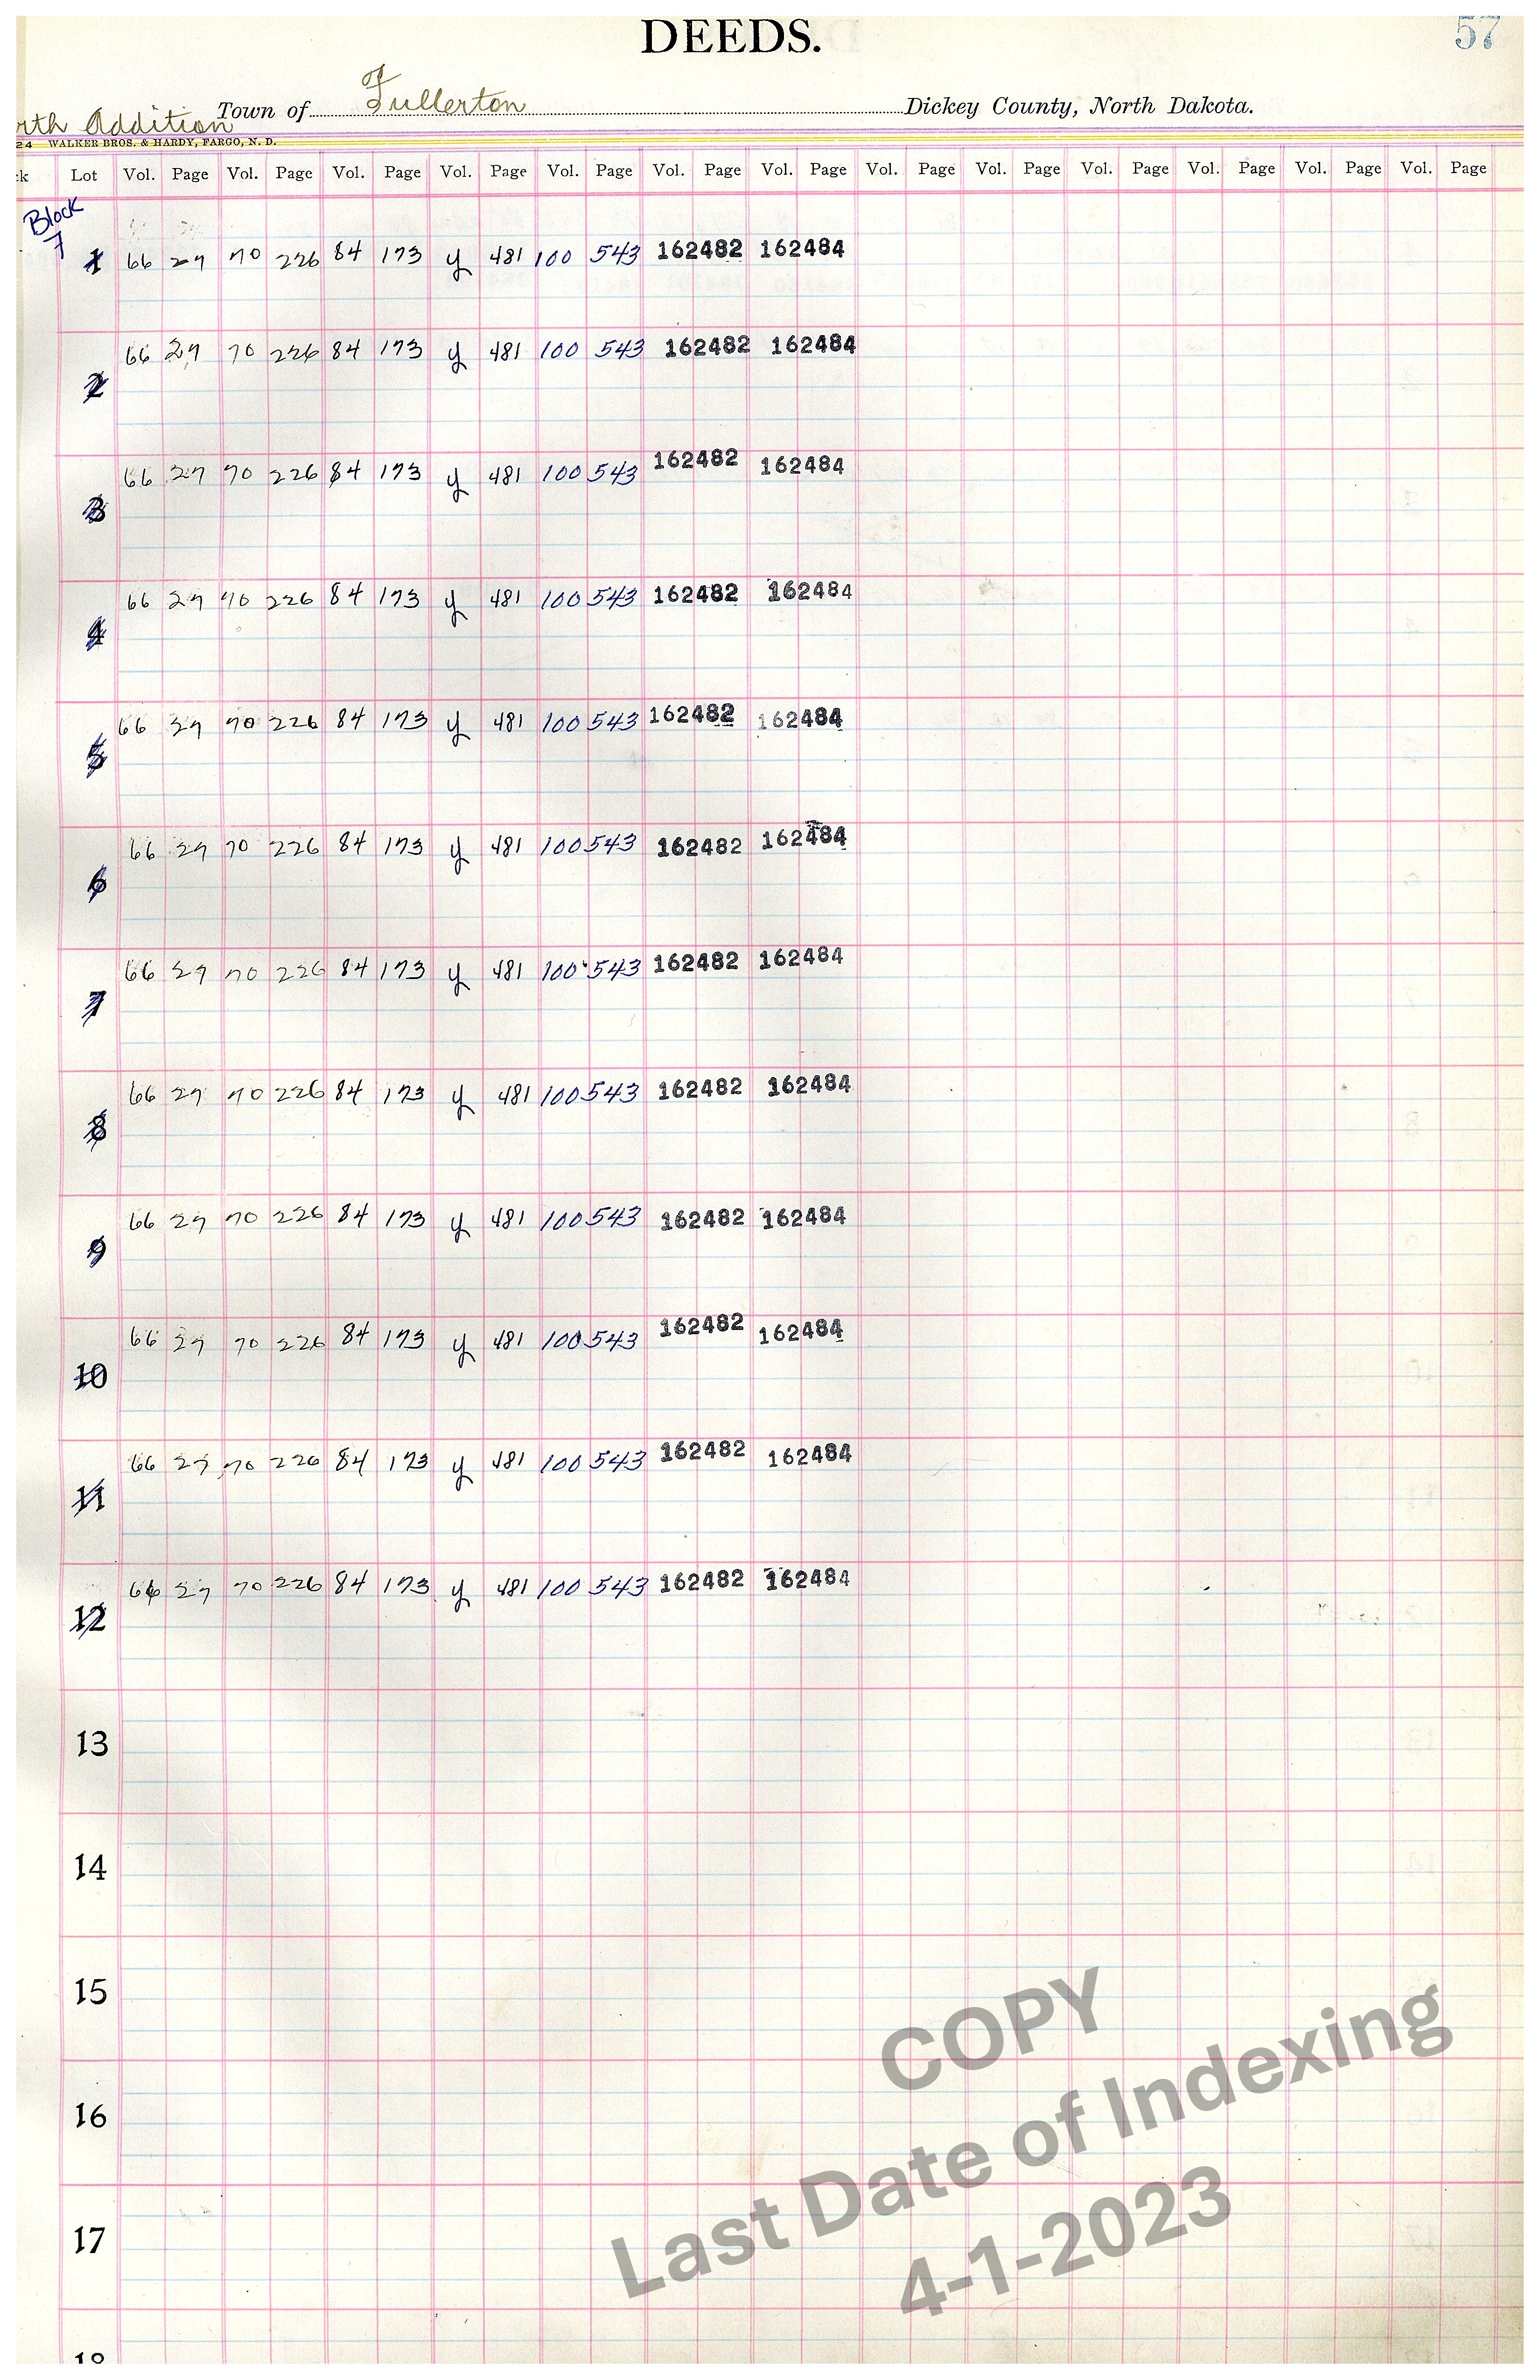 DEEDS. 57
Town of Fullerton Dickey County, North Dakota.
rth Addition
24 WALKER BROS. & HARDY, FARGO, N. D.
k Lot Vol. Page Vol. Page Vol. Page Vol. Page Vol. Page Vol. Page Vol. Page Vol. Page Vol. Page Vol. Page Vol. Page Vol. Page Vol. Page
Block
7
1 66 27 70 226 84 173 y 481 100 543 162482 162484
66 27 70 226 84 173 y 481 100 543 162482 162484
2
66 27 70 226 84 173 y 481 100 543 162482 162484
3
66 27 70 226 84 173 y 481 100 543 162482 162484
4
66 27 70 226 84 173 y 481 100 543 162482 162484
5
66 27 70 226 84 173 y 481 100 543 162482 162484
6
66 27 70 226 84 173 y 481 100 543 162482 162484
7
66 27 70 226 84 173 y 481 100 543 162482 162484
8
66 27 70 226 84 173 y 481 100 543 162482 162484
9
66 27 70 226 84 173 y 481 100 543 162482 162484
10
66 27 70 226 84 173 y 481 100 543 162482 162484
11
66 27 70 226 84 173 y 481 100 543 162482 162484
12
13
14
15
16
17
18
COPY
Last Date of Indexing
4-1-2023